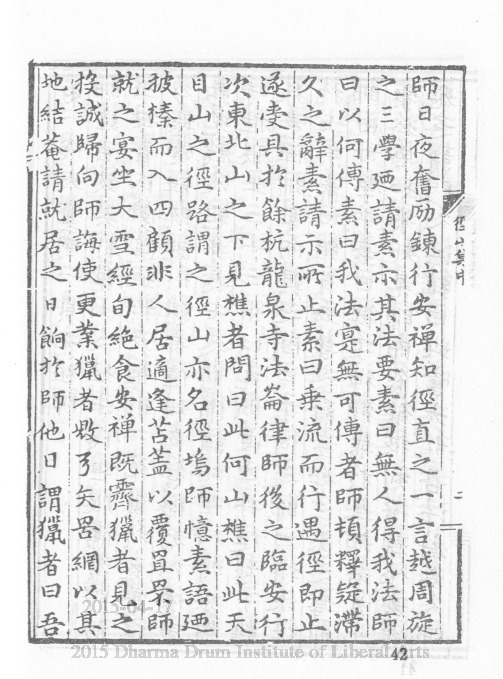 師日夜奮励鍊行安禪知徑直之一言越周旋
之三學迺請素示其法要素曰無人得我法師
曰以何傳素曰我法寔無可傳者師頓釋疑滯
久之辭素請示所止素曰乗流而行遇徑即止
遂受具扵餘杭龍泉寺法崙律師後之臨安行
次東北山之下見樵者問曰此何山樵曰此天
目山之徑路謂之徑山亦名徑塢師憶素語迺
披榛而入四顧非人居適逢苫盖以覆罝罘師
就之宴坐大雪經旬絶食安禪既霽獵者見之
投誠歸向師誨使更業獵者毀弓矢罟網以其
地結菴請就居之日餉扵師他日謂獵者曰吾
徑山集中
二
2015-04-17
2015 Dharma Drum Institute of Liberal Arts
42